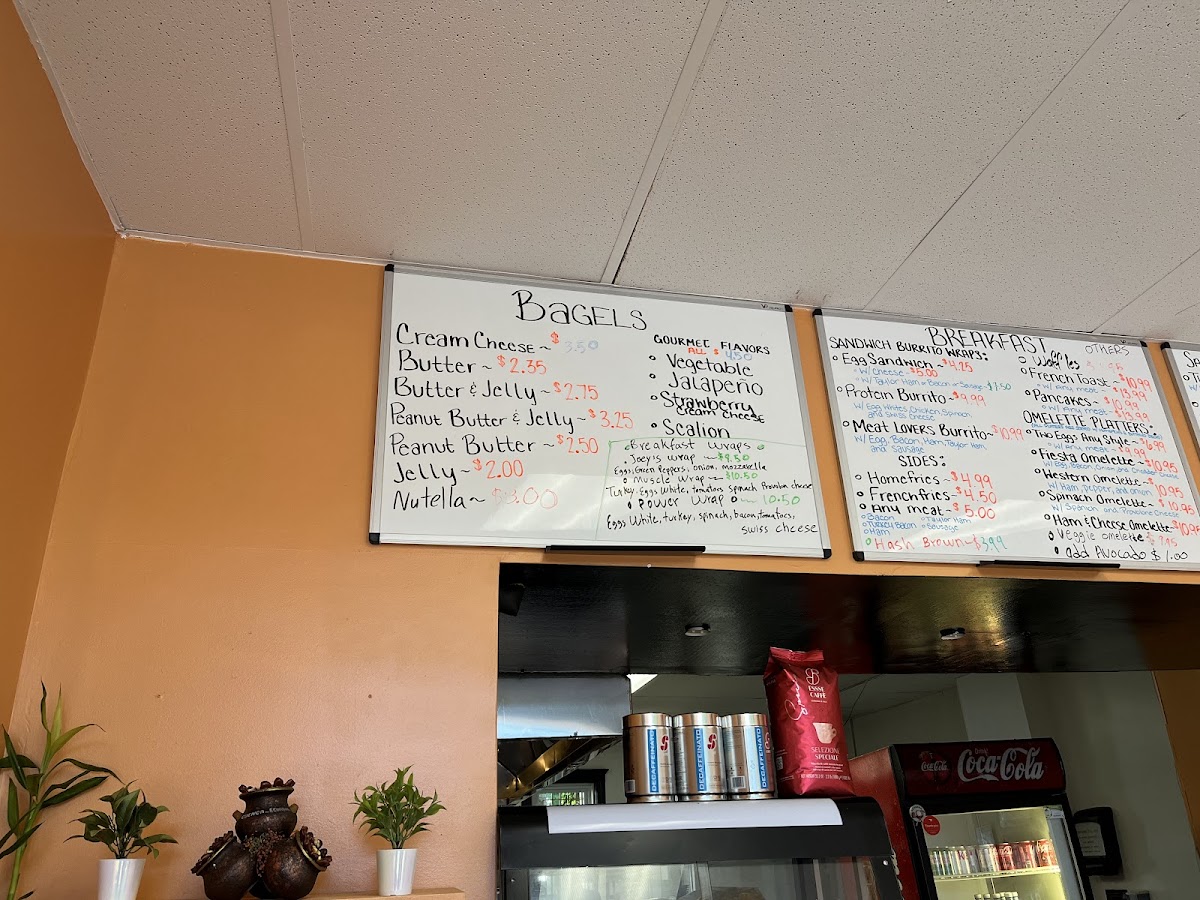 BAGELS
Cream Cheese ~ $3.50
Butter ~ $2.35
Butter & Jelly ~ $2.75
Peanut Butter & Jelly ~ $3.25
Peanut Butter ~ $2.50
Jelly ~ $2.00
Nutella ~ $3.00
GOURMET FLAVORS
ALL $ 4.50
Vegetable
Jalapeño
Strawberry
cream cheese
Scalion
Breakfast wraps
Joey's wrap ~ $9.50
Eggs, Green Peppers, onion, mozzarella
Muscle Wrap ~ $10.50
Turkey, Eggs White, tomatoes Spinach Provolon cheese
Power Wrap ~ 10.50
Eggs White, turkey, spinach, bacon, tomatoes,
swiss cheese
BREAKFAST
SANDWICH BURRITO WRAPS:
Egg Sandwich ~ $4.25
w/ Cheese ~ $5.00
w/ Taylor Ham or Bacon or Sausage ~ $7.50
Protein Burrito ~ $9.99
w/ Egg Whites, Chicken, Spinach
and Swiss Cheese
Meat Lovers Burrito ~ $10.99
w/ Egg, Bacon, Ham, Taylor Ham
and Sausage
SIDES:
Homefries ~ $4.99
Frenchfries ~ $4.50
Any meat ~ $5.00
Bacon
Turkey Bacon
Ham
Taylor Ham
Sausage
Hash Brown ~ $3.99
OTHERS
French Toast ~ $10.99
w/ Any meat ~ $13.99
Pancakes ~ $10.99
w/ Any meat ~ $13.99
OMELETTE PLATTERS:
Two Eggs Any Style ~ $6.99
w/ Any meat ~ $9.99
Fiesta Omelette ~ $10.95
w/ Egg, Bacon, Onion and Cheddar Cheese
Western Omelette ~ $10.95
w/ Ham, pepper, and onion
Spinach Omelette ~ $10.95
w/ Spinach and Provolone Cheese
Ham & Cheese Omelette ~ $10.95
Veggie omelette
add Avocado $1.00
DECAFFEINATO
DECAFFEINATO
DECAFFEINATO
ESSSE
CAFFÈ
SELEZIONE
SPECIALE
Coca-Cola
Coca-Cola